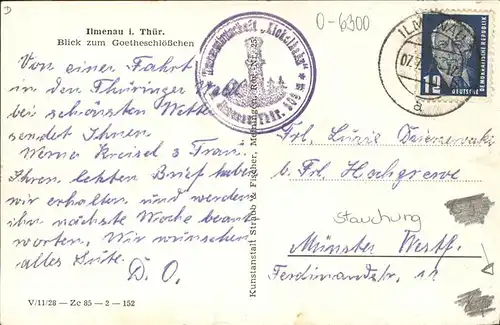 Ilmenau i. Thür.
Blick zum Goetheschlößchen
Von einer Fahrt
in den Thüringer Wald
bei schönsten Wetter
sendet Ihnen
Werner Kreisel & Frau.
Ihren letzten Brief haben
wir erhalten und werden
ihn nächste Woche beant
worten. Wir wünschen
alles Gute.
D. O.
V/11/28 — Ze 85 — 2 — 152
Kunstanstalt Straub & Fischer, Meiningen, Reg. Nr. 25
0-6300
ILMENAU
07.
a
12
DEUTSCHE DEMOKRATISCHE REPUBLIK
Frl. Luise
b. Frl. Hohgrewe
Stauchung
Münster Westf.
Ferdinandstr. 11